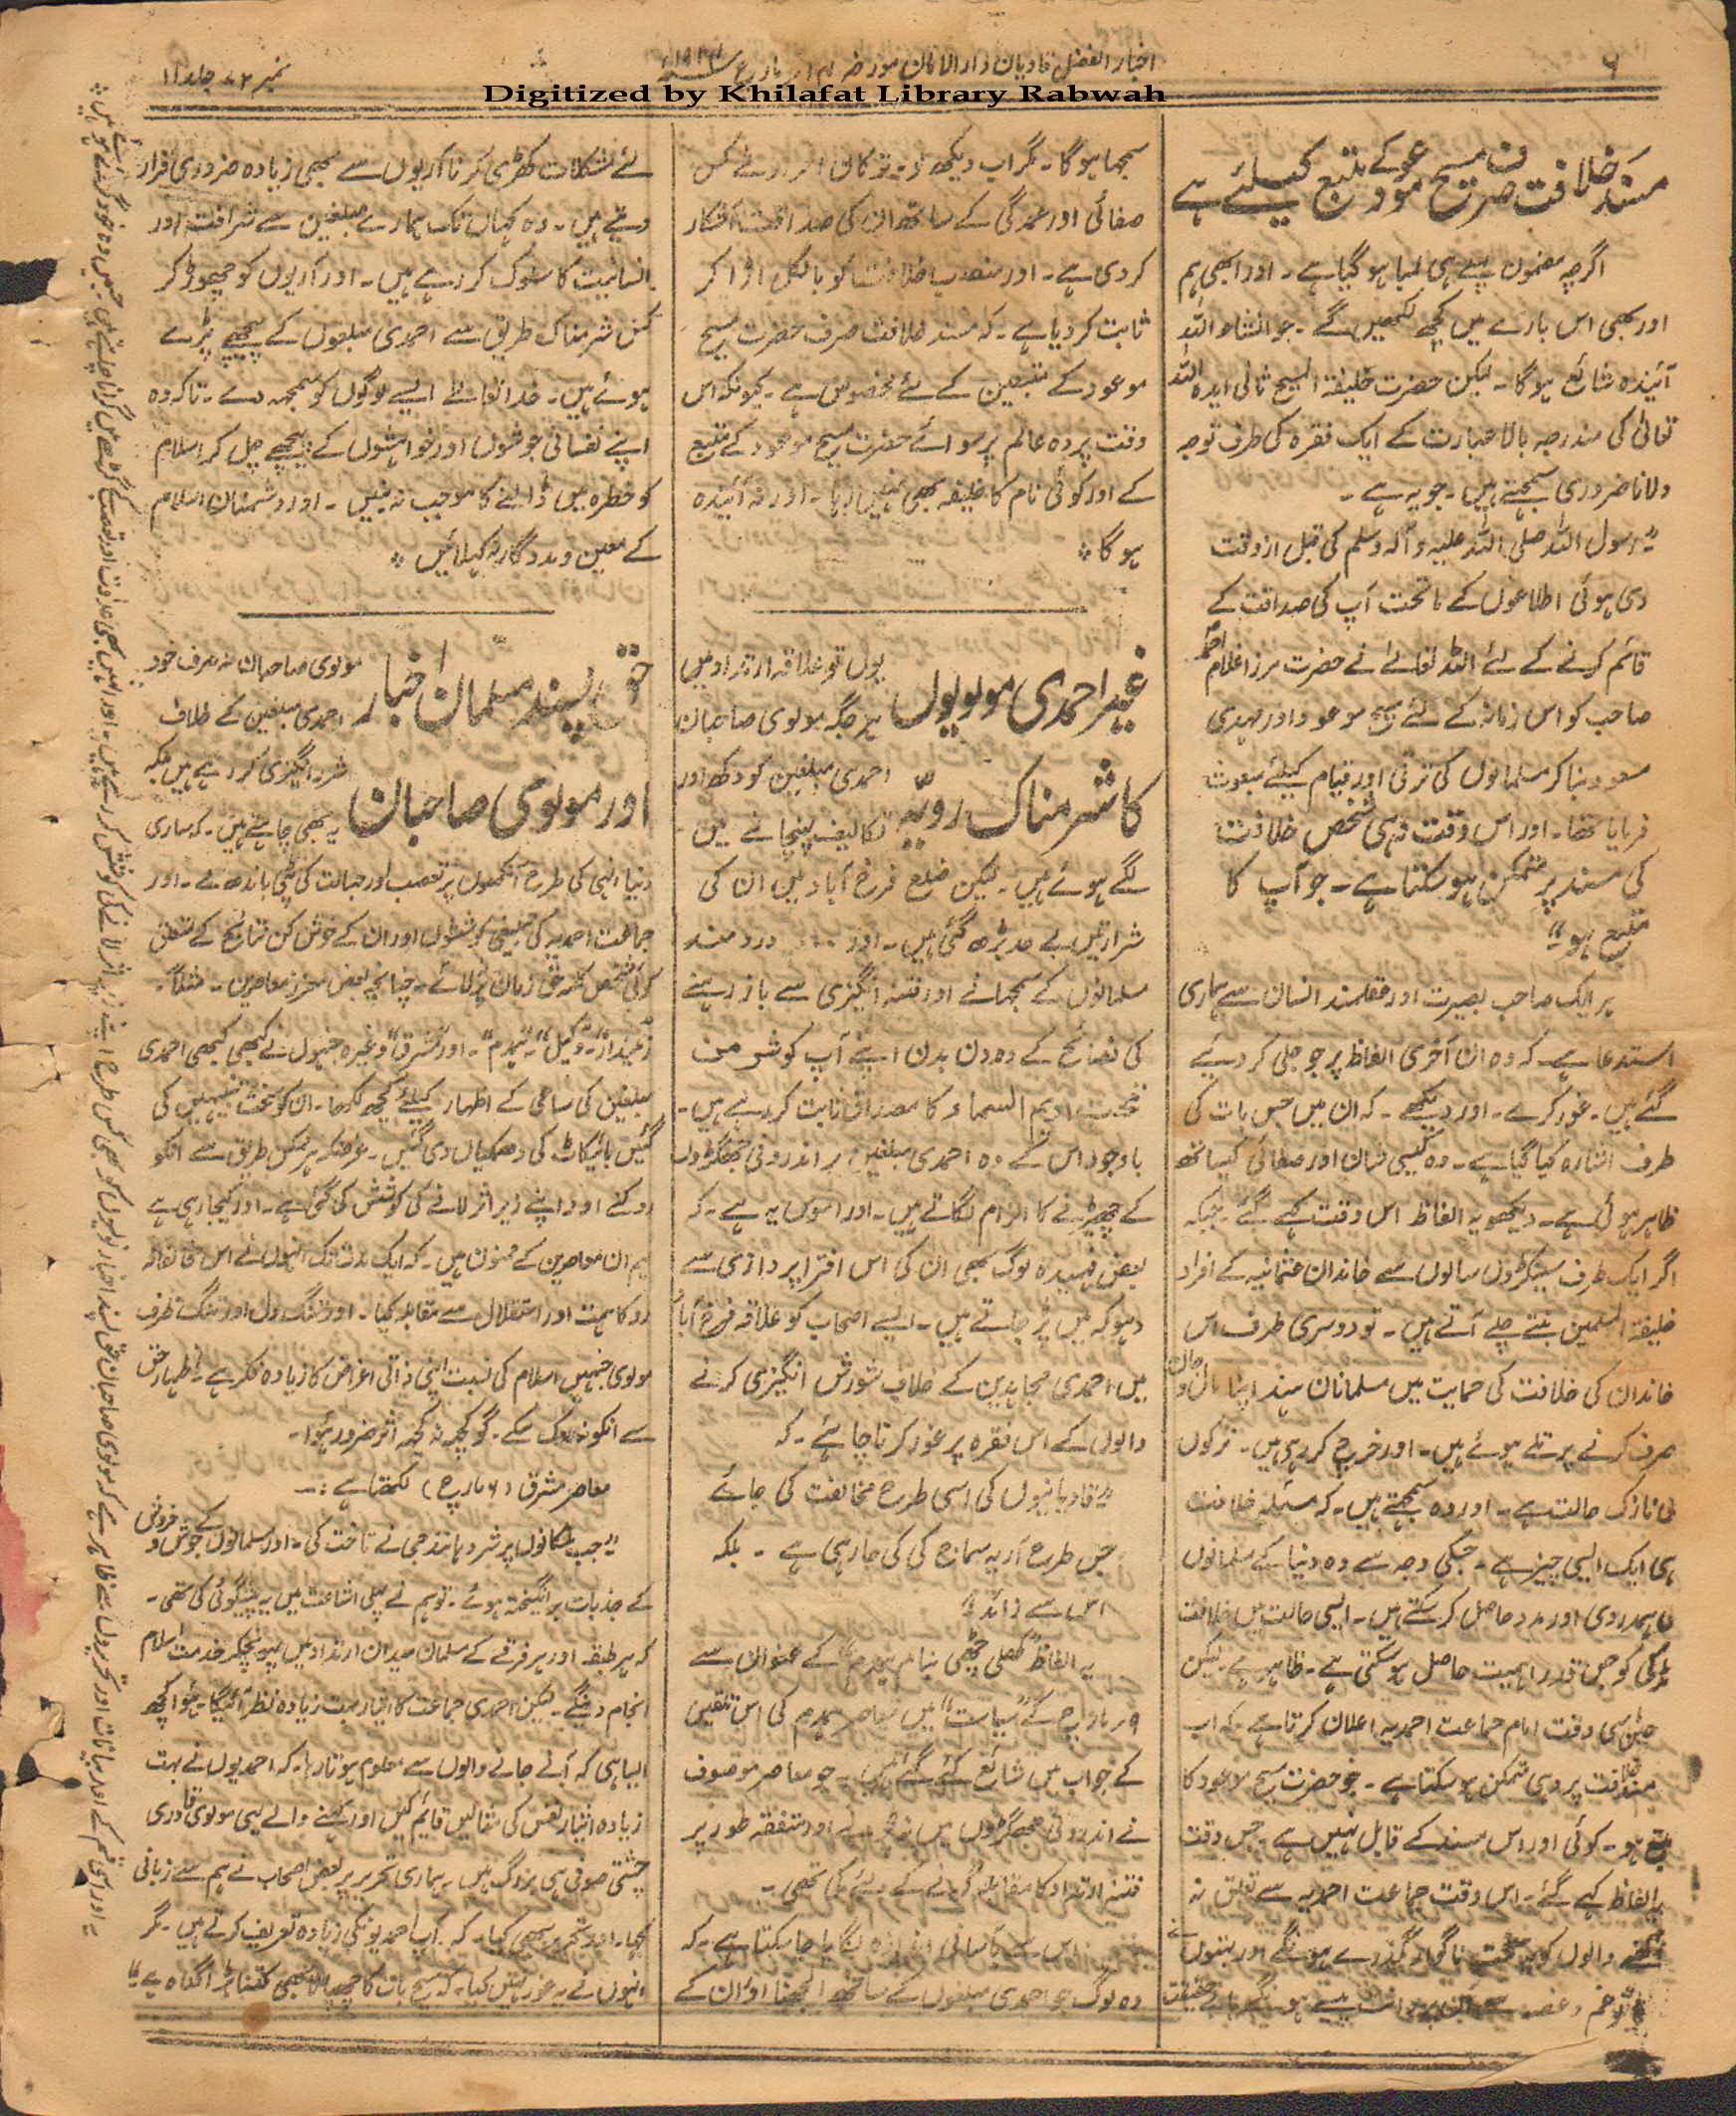 ۶
اخبار الفضل قادیان دارالامان مورخہ ۱۴ مارچ ۱۹۲۴ء
نمبر ۷۲ جلد ۱۱
Digitized by Khilafat Library Rabwah
مسند خلافت صرف مسیح موعود کے متبع کیلئے ہے
اگرچہ مضمون پہلے ہی لمبا ہو گیا ہے۔ اور ابھی ہم
اور بھی اس بارے میں کچھ لکھیں گے۔ جو انشاء اللہ
آئیندہ شائع ہوگا۔ لیکن حضرت خلیفۃ المسیح ثانی ایدہ اللہ
تعالیٰ کی مندرجہ بالا عبارت کے ایک فقرہ کی طرف توجہ
دلانا ضروری سمجھتے ہیں۔ جو یہ ہے۔
"رسول اللہ صلی اللہ علیہ وآلہ وسلم کی قبل از وقت
دی ہوئی اطلاعوں کے ماتحت آپ کی صداقت کے
قائم کرنے کے لئے اللہ تعالےٰ نے حضرت مرزا غلام احمد
صاحب کو اس زمانہ کے لئے مسیح موعود اور مہدی
مسعود بنا کر مسلمانوں کی ترقی اور قیام کیلئے مبعوث
فرمایا تھا۔ اور اس وقت وہی شخص خلافت
کی مسند پر متمکن ہو سکتا ہے۔ جو آپ کا
متبع ہو"
ہر ایک صاحب بصیرت اور عقلمند انسان سے ہماری
استدعا ہے۔ کہ وہ ان آخری الفاظ پر جو جلی کر دیئے
گئے ہیں۔ غور کرے۔ اور دیکھے۔ کہ ان میں جس بات کی
طرف اشارہ کیا گیا ہے۔ وہ کیسی شان اور صفائی کیساتھ
ظاہر ہوئی ہے۔ دیکھو یہ الفاظ اس وقت کہے گئے۔ جبکہ
اگر ایک طرف سینکڑوں سالوں سے خاندان عثمانیہ کے افراد
خلیفۃ المسلمین بنتے چلے آتے ہیں۔ تو دوسری طرف اس
خاندان کی خلافت کی حمایت میں مسلمانان ہند اپنا مال و جان
صرف کرنے پر تلے ہوئے ہیں۔ اور خرچ کر رہے ہیں۔ ترکوں
کی نازک حالت ہے۔ اور وہ سمجھتے ہیں۔ کہ مسئلہ خلافت
ہی ایک ایسی چیز ہے۔ جسکی وجہ سے وہ دنیا کے مسلمانوں
ہمدردی اور مدد حاصل کر سکتے ہیں۔ ایسی حالت میں خلافت
ٹرکی کو جس قدر اہمیت حاصل ہو سکتی ہے۔ ظاہر ہے۔ لیکن
عین اسی وقت امام جماعت احمدیہ اعلان کرتا ہے کہ اب
مسند خلافت پر وہی متمکن ہو سکتا ہے۔ جو حضرت مسیح موعود کا
متبع ہو۔ کوئی اور اس مسند کے قابل نہیں ہے۔ جس وقت
یہ الفاظ کہے گئے۔ اس وقت جماعت احمدیہ سے تعلق نہ
رکھنے والوں کو سخت ناگوار گذرے ہونگے اور بہتوں نے
سمجھا ہوگا۔ مگر اب دیکھ لو۔ یہ ترکان احرار نے کس
صفائی اور عمدگی کے ساتھ ان کی صداقت آشکار
کر دی ہے۔ اور منصب خلافت کو بالکل اڑا کر
ثابت کر دیا ہے۔ کہ مسند خلافت صرف حضرت مسیح
موعود کے متبعین کے لئے مخصوص ہے۔ کیونکہ اس
وقت پردہ عالم پر سوائے حضرت مسیح موعود کے متبع
کے اور کوئی نام کا خلیفہ بھی نہیں رہا۔ اور نہ آئیندہ
ہوگا ؞
غیر احمدی مولویوں کا شرمناک رویّہ
یوں تو علاقہ ارتداد میں
ہر جگہ مولوی صاحبان
احمدی مبلغین کو دکھ اور
تکالیف پہنچانے میں
لگے ہوئے ہیں۔ لیکن ضلع فرخ آباد میں ان کی
شرارتیں بے حد بڑھ گئی ہیں۔ اور ... دردمند
مسلمانوں کے سمجھانے اور فتنہ انگیزی سے باز رہنے
کی نصائح کے وہ دن بدن اپنے آپ کو شر من
تحت ادیم السماء کا مصداق ثابت کر رہے ہیں۔
باوجود اس کے وہ احمدی مبلغین پر اندرونی جھگڑوں
کے چھیڑنے کا الزام لگاتے ہیں۔ اور افسوس یہ ہے۔ کہ
بعض فہمیدہ لوگ بھی ان کی اس افترا پردازی سے
دہوکہ میں پڑ جاتے ہیں۔ ایسے اصحاب کو علاقہ فرخ آباد
میں احمدی مجاہدین کے خلاف شورش انگیزی کرنے
والوں کے اس فقرہ پر غور کرنا چاہئے۔ کہ
"قادیانیوں کی اسی طرح مخالفت کی جائے
جس طرح آریہ سماج کی کی جا رہی ہے۔ بلکہ
اس سے زائد"
یہ الفاظ "کھلی چٹھی بنام ہمدم" کے عنوان سے
۹ مارچ کے "سیاست" میں معاصر ہمدم کی اس تلقین
کے جواب میں شائع کئے گئے ہیں۔ جو معاصر موصوف
نے اندرونی جھگڑوں میں نہ پڑنے اور متفقہ طور پر
فتنہ ارتداد کا مقابلہ کرنے کے لئے کی تھی۔
اس سے بآسانی اندازہ لگایا جا سکتا ہے۔ کہ
وہ لوگ جو احمدی مبلغوں کے ساتھ الجھنا اور ان کے
لئے مشکلات کھڑی کرنا آریوں سے بھی زیادہ ضروری قرار
دیتے ہیں۔ وہ کہاں تک ہمارے مبلغین سے شرافت اور
انسانیت کا سلوک کر رہے ہیں۔ اور آریوں کو چھوڑ کر
کس شرمناک طریق سے احمدی مبلغوں کے پیچھے پڑے
ہوئے ہیں۔ خدا تعالےٰ ایسے لوگوں کو سمجھ دے۔ تاکہ وہ
اپنے نفسانی جوشوں اور خواہشوں کے پیچھے چل کر اسلام
کو خطرہ میں ڈالنے کا موجب نہ بنیں۔ اور دشمنان اسلام
کے معین و مددگار نہ کہلائیں ؞
حق پسند مسلمان اخبار اور مولوی صاحبان
مولوی صاحبان نہ صرف خود
احمدی مبلغین کے خلاف
شر انگیزی کر رہے ہیں بلکہ
یہ بھی چاہتے ہیں۔ کہ ساری
دنیا انہی کی طرح آنکھوں پر تعصب اور جہالت کی پٹی باندھ لے۔ اور
جماعت احمدیہ کی تبلیغی کوششوں اور ان کے خوش کن نتائج کے متعلق
کوئی شخص کلمہ حق زبان پر نہ لائے۔ چنانچہ بعض معزز معاصرین۔ مثلاً
"زمیندار"۔ "وکیل"۔ "ہمدم"۔ اور "مشرق" وغیرہ جنہوں نے کبھی کبھی احمدی
مبلغین کی مساعی کے اظہار کیلئے کچھ لکھا۔ ان کو سخت تنبیہیں کی
گئیں بائیکاٹ کی دھمکیاں دی گئیں۔ غرضکہ ہر ممکن طریق سے انکو
روکنے اور اپنے زیر اثر لانے کی کوشش کی گئی ہے۔ اور کیجا رہی ہے
ہم ان معاصرین کے ممنون ہیں۔ کہ ایک مدت تک انہوں نے اس مخالفانہ
رو کا ہمت اور استقلال سے مقابلہ کیا۔ اور تنگ دل اور تنگ ظرف
مولوی جنہیں اسلام کی نسبت اپنی ذاتی اغراض کا زیادہ فکر ہے اظہار حق
سے انکو نہ روک سکے۔ گو کچھ نہ کچھ اثر ضرور ہوا۔
معاصر مشرق (۶ مارچ) لکھتا ہے:۔
"جب ملکانوں پر شردہانندجی نے تاخت کی۔ اور مسلمانوں کے جوش و فروشی
کے جذبات برانگیختہ ہوئے۔ تو ہم نے پہلی اشاعت میں یہ پیشگوئی کی تھی۔
کہ ہر طبقہ اور ہر فرقے کے مسلمان میدان ارتداد میں پہونچکر خدمت اسلام
انجام دینگے۔ لیکن احمدی جماعت کا ایثار بہت زیادہ نظر آئیگا۔ ہوا کچھ
ایسا ہی کہ آنے جانے والوں سے معلوم ہوتا رہا۔ کہ احمدیوں نے بہت
زیادہ ایثار نفس کی مثالیں قائم کیں اور کہنے والے یہی مولوی قادری
چشتی صوفی ہی بزرگ ہیں۔ ہماری تحریر پر بعض اصحاب نے ہم سے زبانی
کہا۔ اور تحریر بھی کیا۔ کہ آپ احمدیونکی زیادہ تعریف کرتے ہیں۔ مگر
انہوں نے یہ غور نہیں کیا۔ کہ سچ بات کا چھپانا بھی کتنا بڑا گناہ ہے"